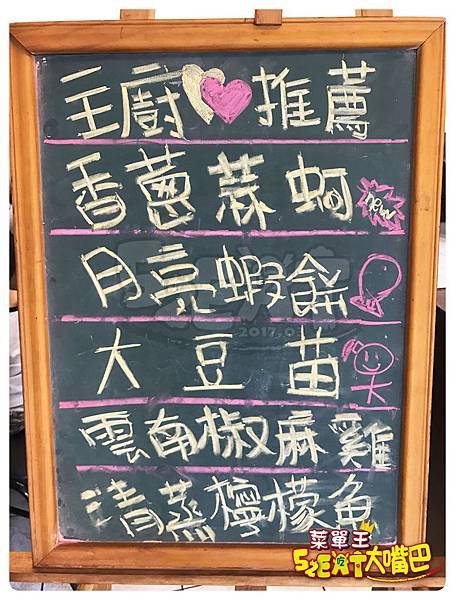 主廚推薦
香蔥蒜蚵 new
月亮蝦餅
大豆苗
雲南椒麻雞
清蒸檸檬魚
2017.0
菜單王
52EAT大嘴巴
吃